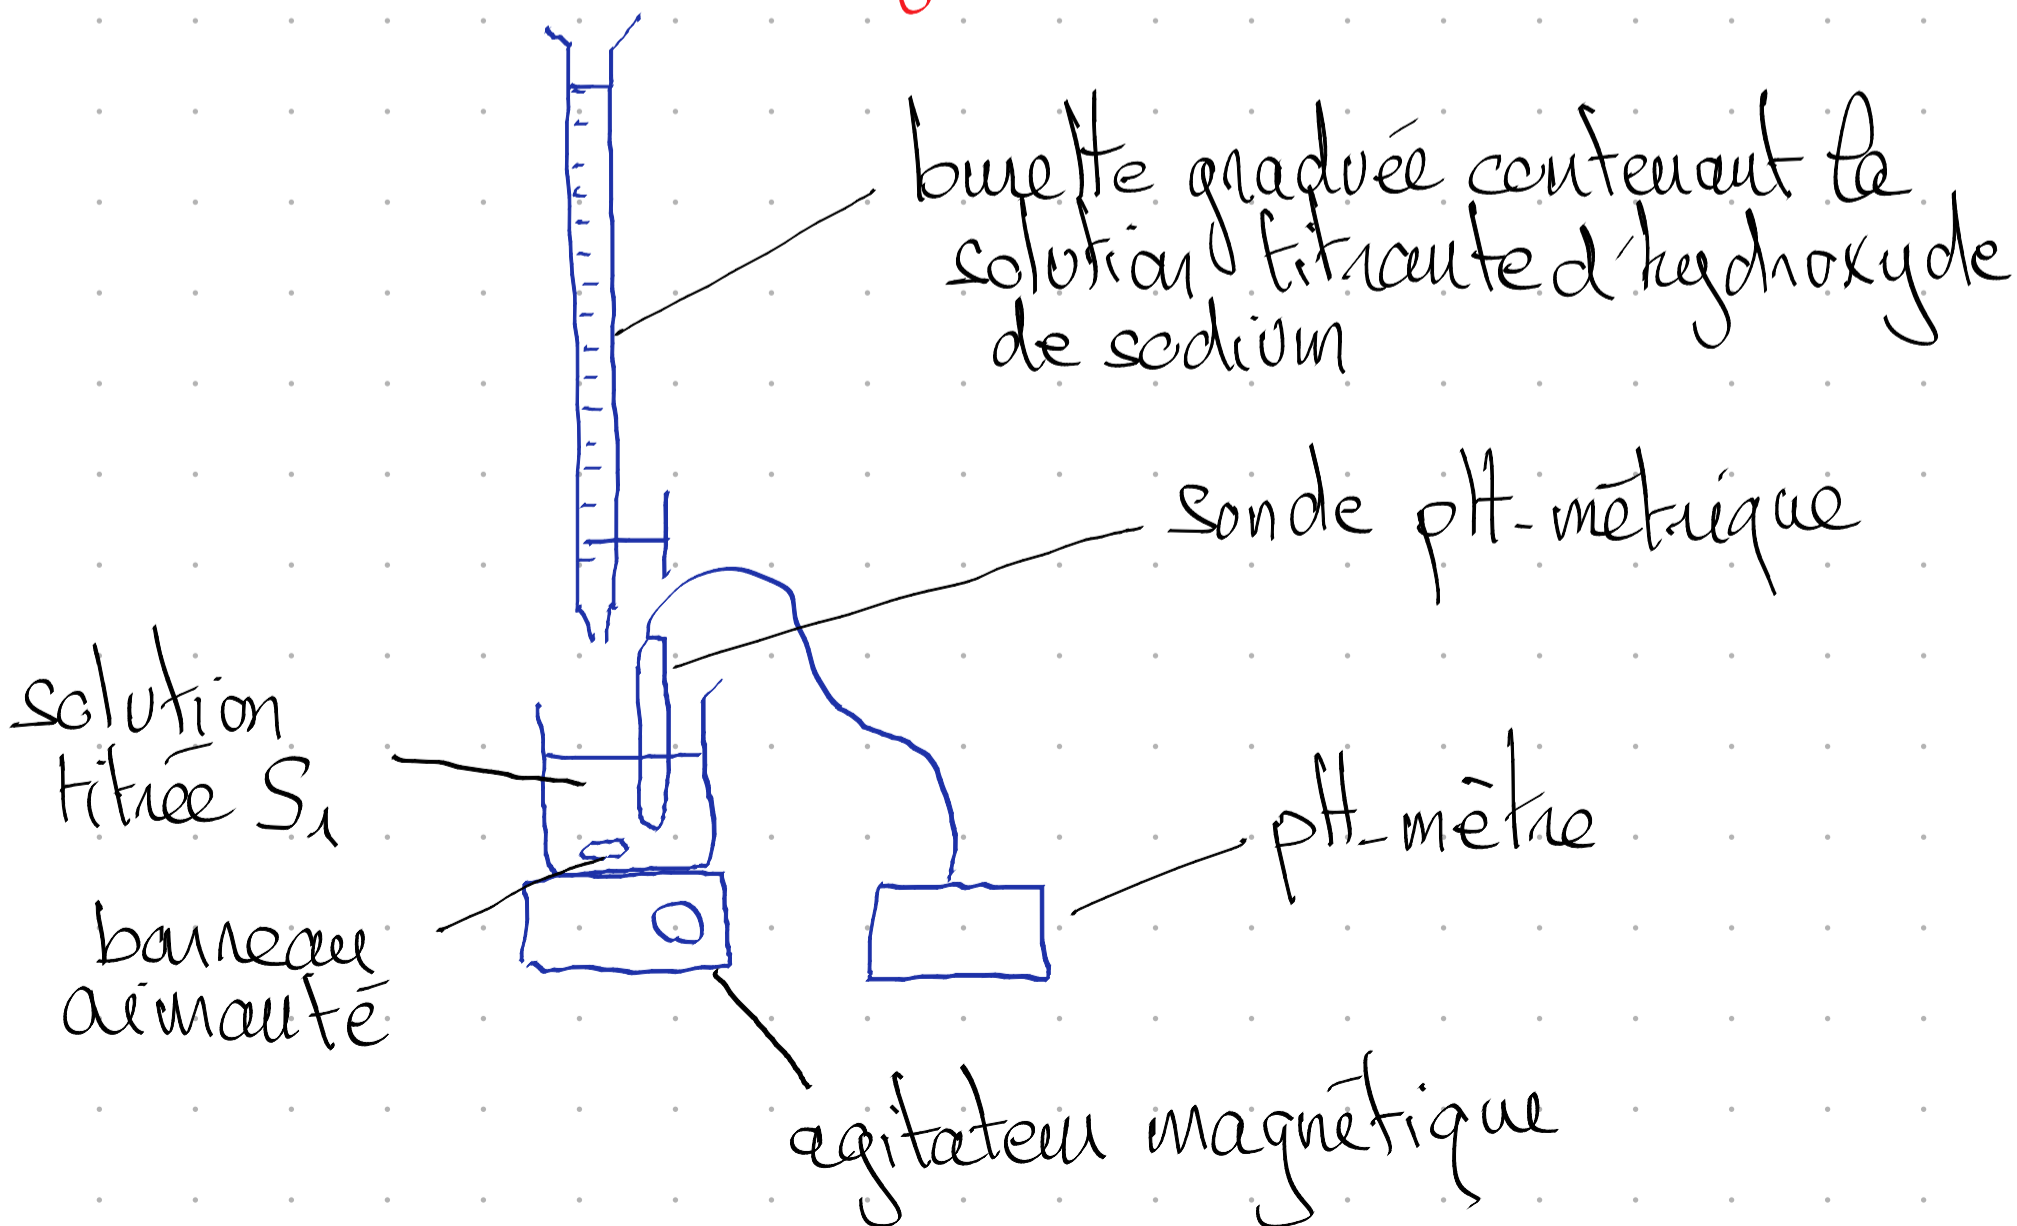 burette graduée contenant la
solution titrante d'hydroxyde
de sodium
sonde pH-métrique
solution
titrée S1
pH-mètre
barreau
aimanté
agitateur magnétique